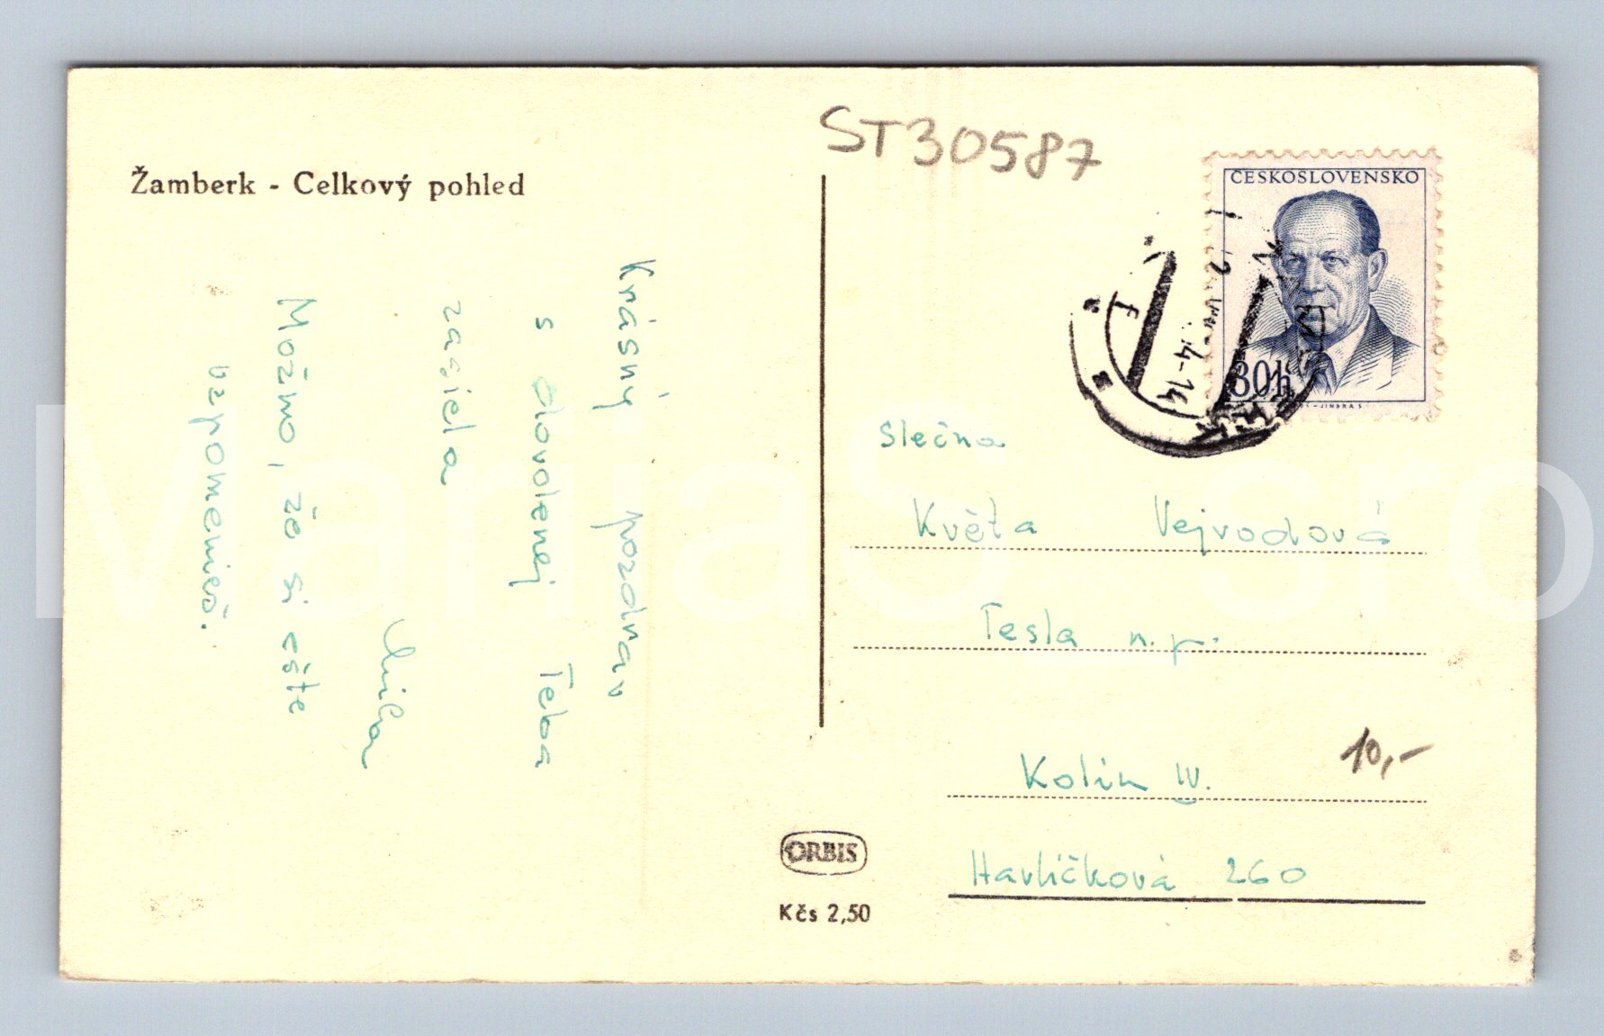 Žamberk - Celkový pohled
ST30587
ČESKOSLOVENSKO
30h
Krásný pozdrav
s dovolenej Teba
zasiela
Miča
Možno, že si ešte
vzpomenieš.
Slečna
Květa Vejvodová
Tesla n.p.
Kolín IV.
10,-
Havlíčková 260
ORBIS
Kčs 2,50